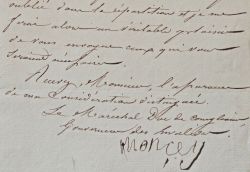 oublié dans la répartition et je me
ferai alors un véritable plaisir
de vous envoyer ceux qui vous
seraient
Agréez, Monsieur, l'assurance
de ma Considération distinguée.
Le Maréchal Duc de Conegliano,
Gouverneur des Invalides
Moncey